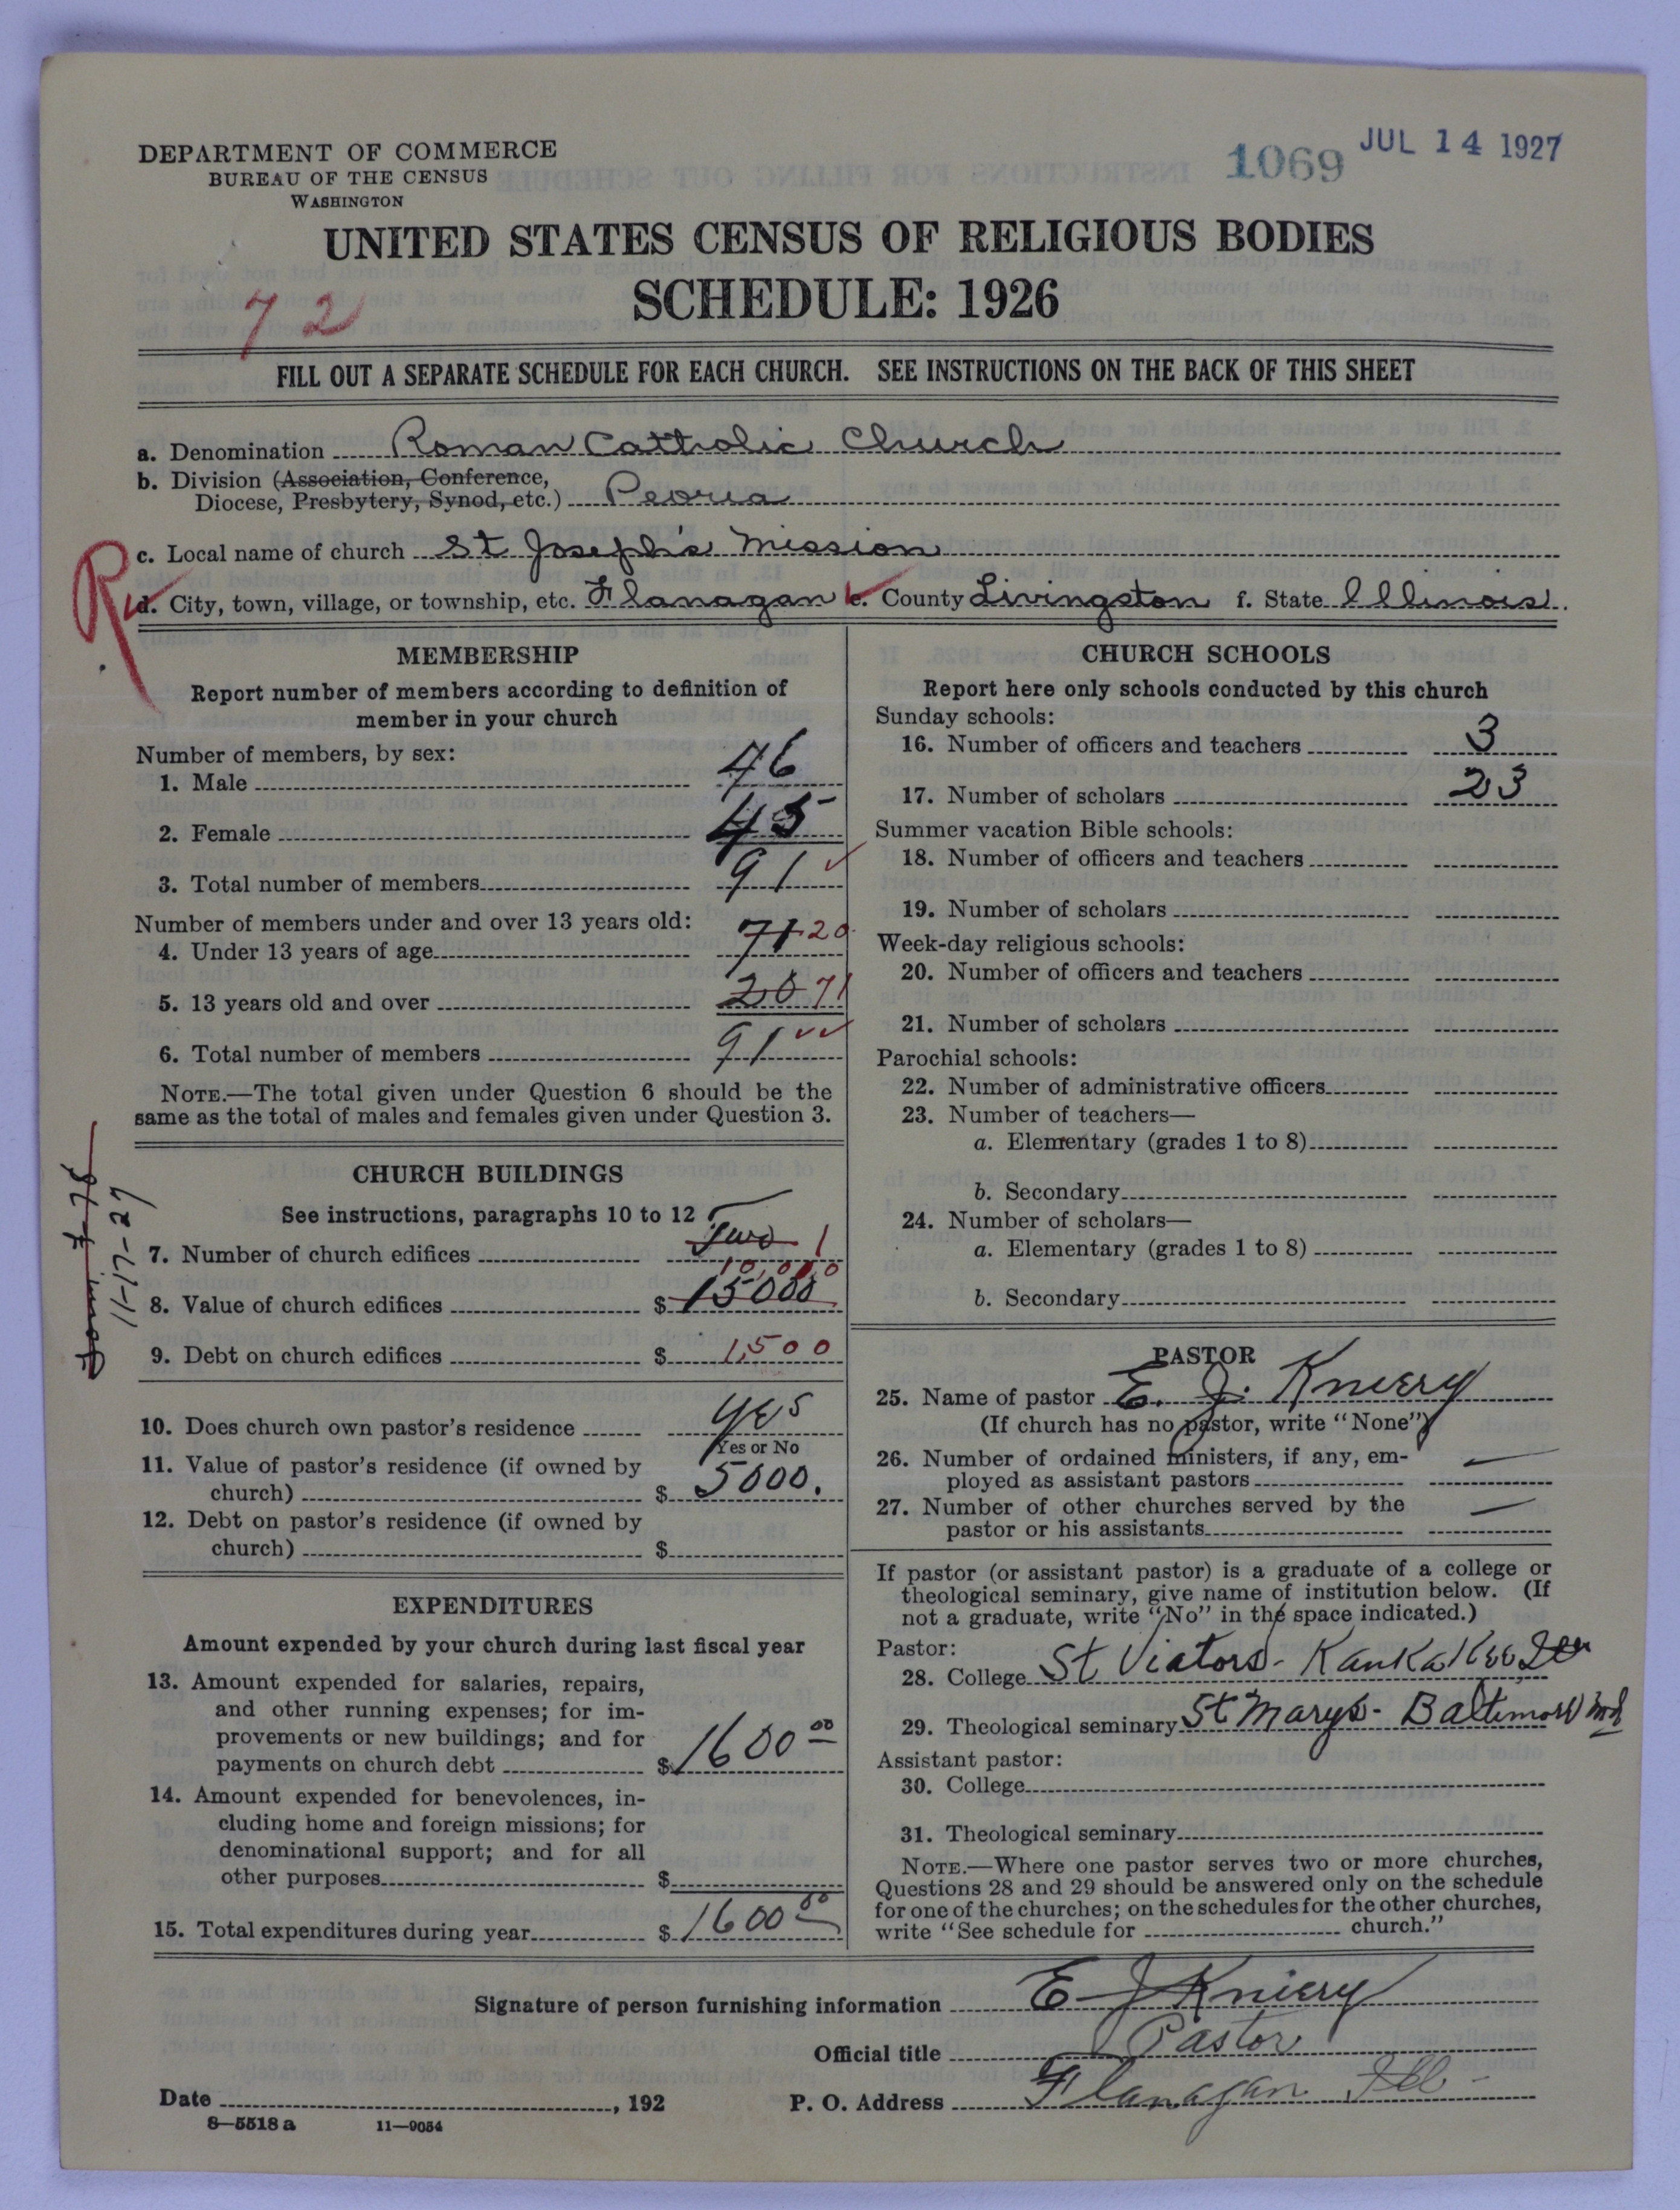 DEPARTMENT OF COMMERCE
BUREAU OF THE CENSUS
WASHINGTON
1069 JUL 14 1927
UNITED STATES CENSUS OF RELIGIOUS BODIES
SCHEDULE: 1926
72
FILL OUT A SEPARATE SCHEDULE FOR EACH CHURCH. SEE INSTRUCTIONS ON THE BACK OF THIS SHEET
a. Denomination Roman Catholic Church
b. Division (Association, Conference,
Diocese, Presbytery, Synod, etc.) Peoria
c. Local name of church St Joseph's Mission
d. City, town, village, or township, etc. Flanagan e. County Livingston f. State Illinois.
MEMBERSHIP
Report number of members according to definition of
member in your church
Number of members, by sex:
1. Male 46
2. Female 45
3. Total number of members 91
Number of members under and over 13 years old:
4. Under 13 years of age 71 20
5. 13 years old and over 20 71
6. Total number of members 91
NOTE.—The total given under Question 6 should be the
same as the total of males and females given under Question 3.
CHURCH BUILDINGS
See instructions, paragraphs 10 to 12
7. Number of church edifices Two 1
10,000
8. Value of church edifices $ 15000
9. Debt on church edifices $ 1,500
10. Does church own pastor's residence Yes
Yes or No
11. Value of pastor's residence (if owned by
church) $ 5000.
12. Debt on pastor's residence (if owned by
church) $
11-17-27
EXPENDITURES
Amount expended by your church during last fiscal year
13. Amount expended for salaries, repairs,
and other running expenses; for im-
provements or new buildings; and for
payments on church debt $ 1600 00
14. Amount expended for benevolences, in-
cluding home and foreign missions; for
denominational support; and for all
other purposes $
15. Total expenditures during year $ 1600 00
CHURCH SCHOOLS
Report here only schools conducted by this church
Sunday schools:
16. Number of officers and teachers 3
17. Number of scholars 23
Summer vacation Bible schools:
18. Number of officers and teachers
19. Number of scholars
Week-day religious schools:
20. Number of officers and teachers
21. Number of scholars
Parochial schools:
22. Number of administrative officers
23. Number of teachers—
a. Elementary (grades 1 to 8)
b. Secondary
24. Number of scholars—
a. Elementary (grades 1 to 8)
b. Secondary
PASTOR
25. Name of pastor E. J. Kniery
(If church has no pastor, write "None")
26. Number of ordained ministers, if any, em-
ployed as assistant pastors —
27. Number of other churches served by the
pastor or his assistants —
If pastor (or assistant pastor) is a graduate of a college or
theological seminary, give name of institution below. (If
not a graduate, write "No" in the space indicated.)
Pastor:
28. College St Viators - Kankakee, Ill
29. Theological seminary St Marys - Baltimore Md
Assistant pastor:
30. College
31. Theological seminary
NOTE.—Where one pastor serves two or more churches,
Questions 28 and 29 should be answered only on the schedule
for one of the churches; on the schedules for the other churches,
write "See schedule for church."
Signature of person furnishing information E J Kniery
Official title Pastor
Date , 192 P. O. Address Flanagan Ill -
8—5518 a 11—9054